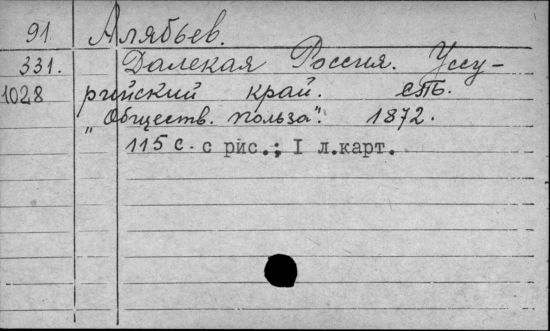 91 Алябьев.
331. Далекая Россия. Уссу-
1028 рийский край. СПБ.
„Обществ. польза". 1872.
115 с. с рис.; I л.карт.